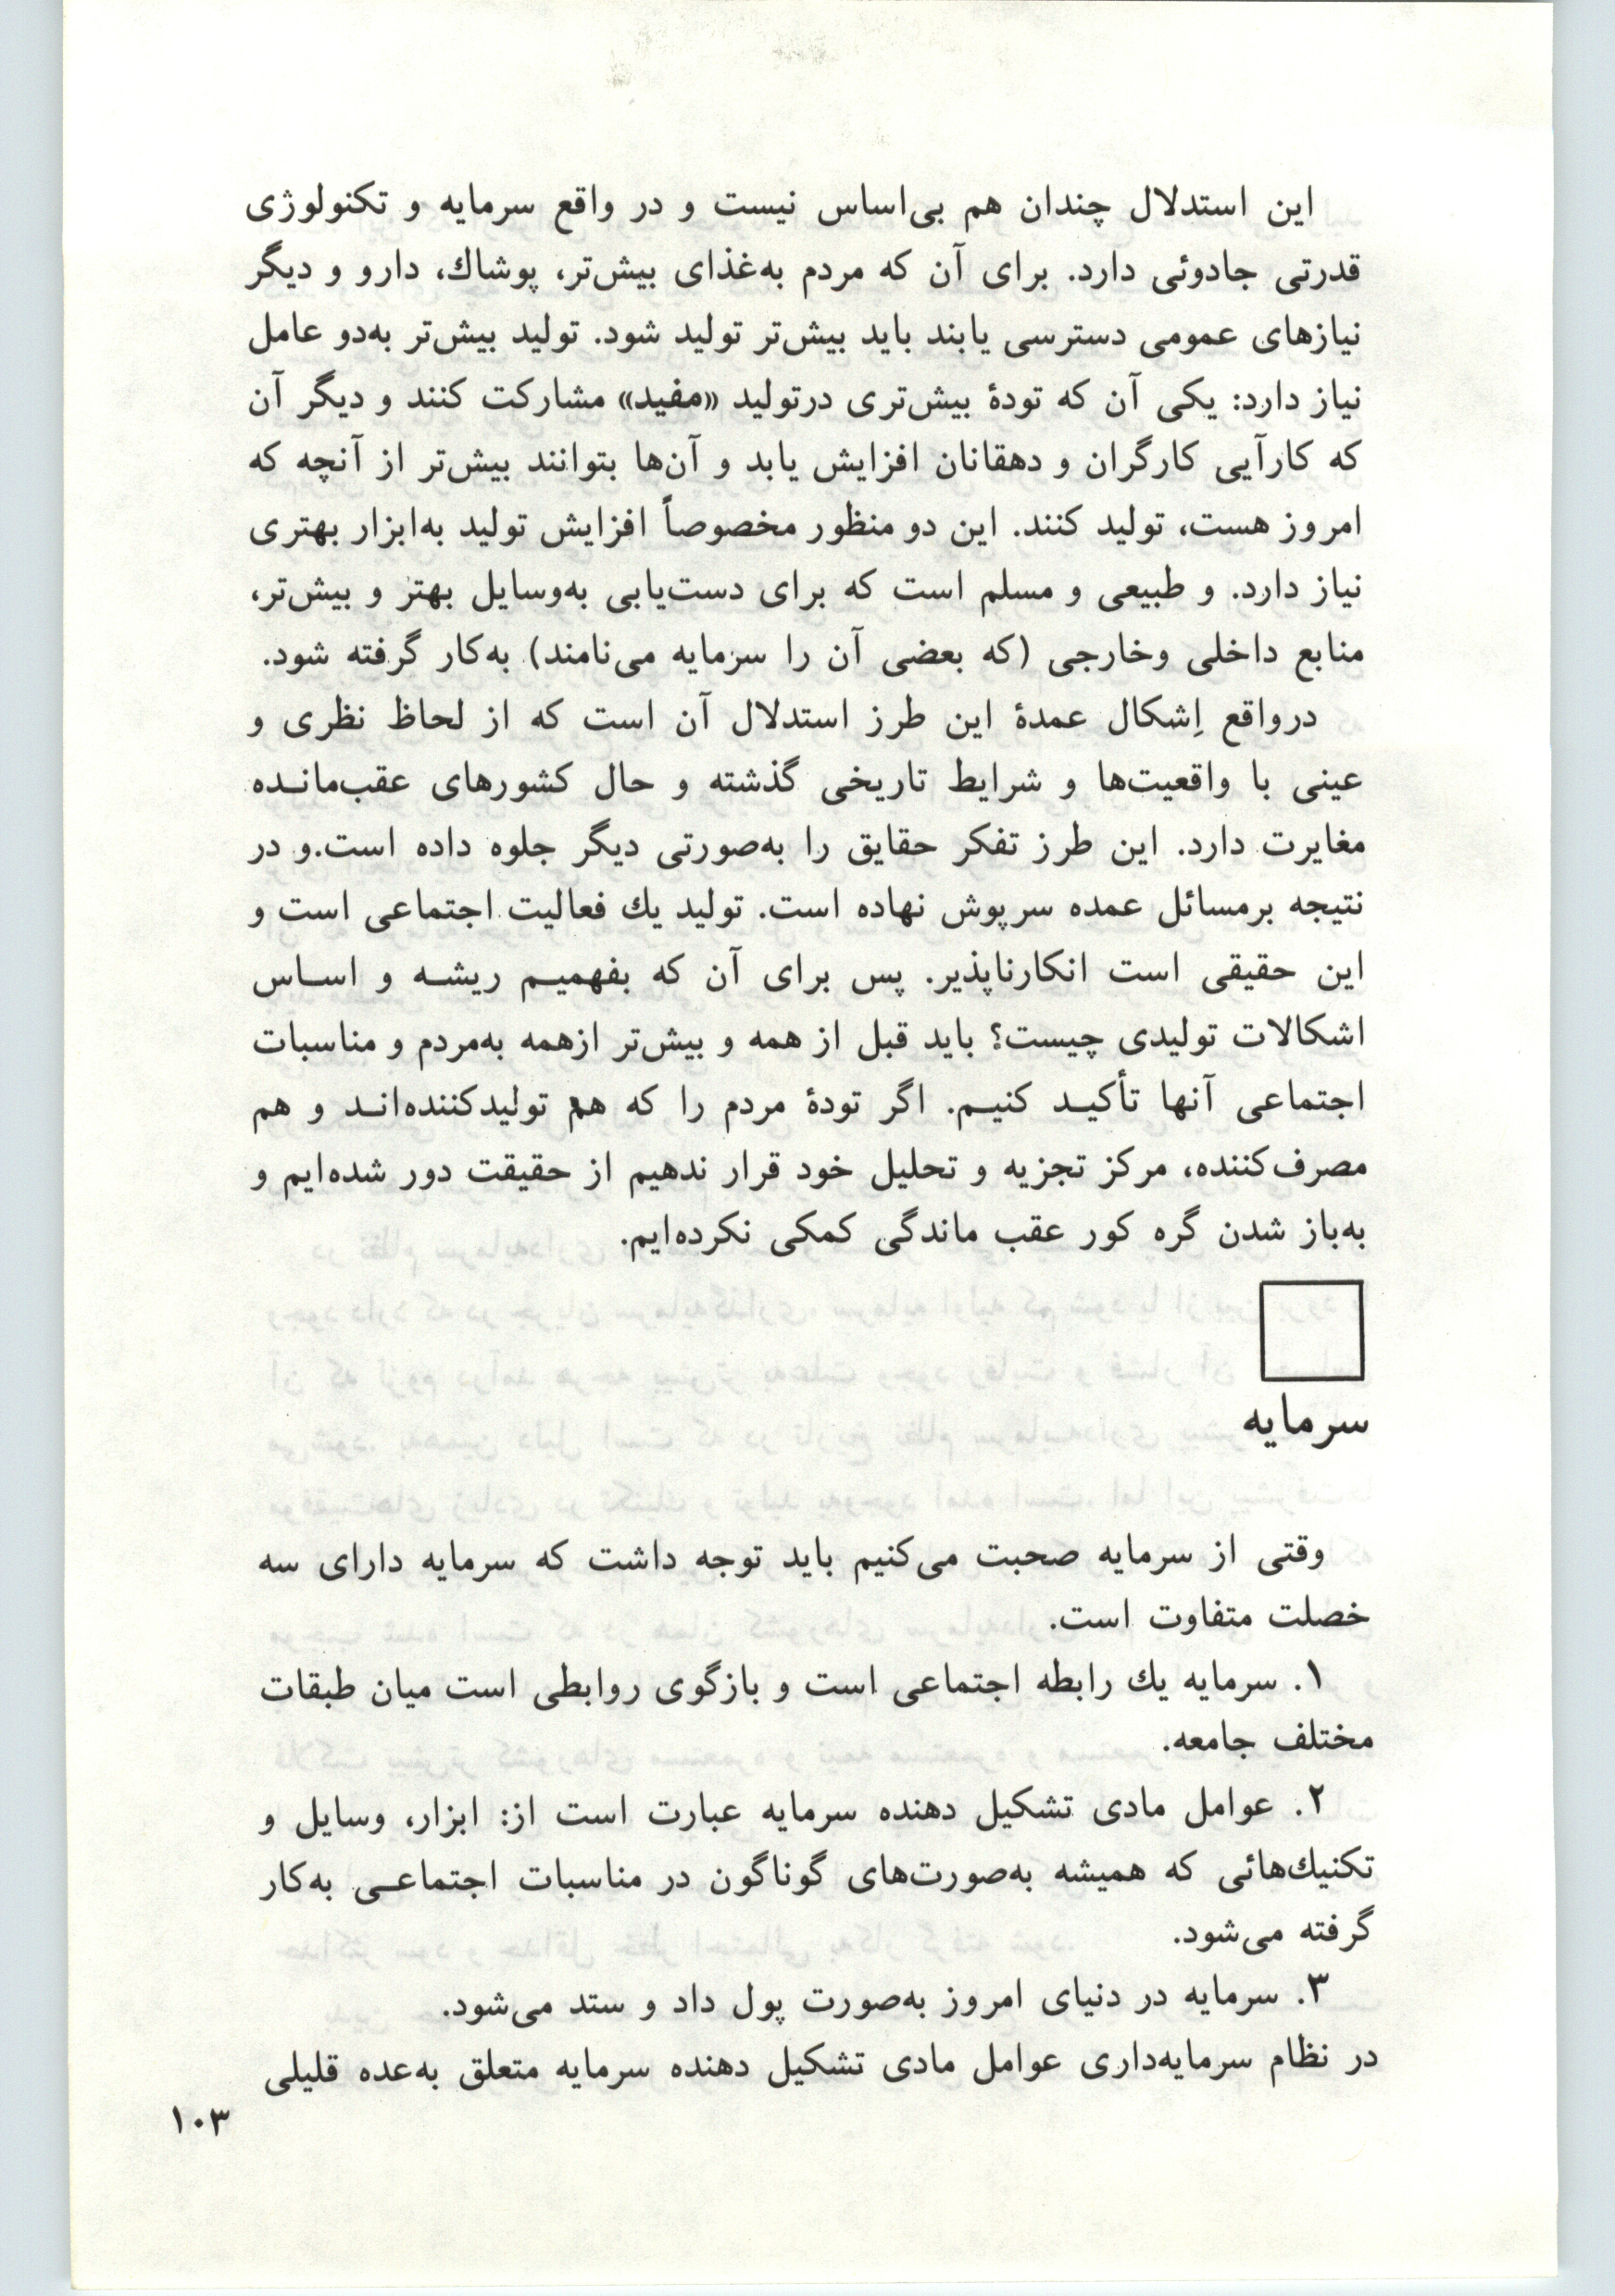 این استدلال چندان هم بی‌اساس نیست و در واقع سرمایه و تکنولوژی
قدرتی جادوئی دارد. برای آن که مردم به‌غذای بیش‌تر، پوشاك، دارو و دیگر
نیازهای عمومی دسترسی یابند باید بیش‌تر تولید شود. تولید بیش‌تر به‌دو عامل
نیاز دارد: یکی آن که تودۀ بیش‌تری درتولید «مفید» مشارکت کنند و دیگر آن
که کارآیی کارگران و دهقانان افزایش یابد و آن‌ها بتوانند بیش‌تر از آنچه که
امروز هست، تولید کنند. این دو منظور مخصوصاً افزایش تولید به‌ابزار بهتری
نیاز دارد. و طبیعی و مسلم است که برای دست‌یابی به‌وسایل بهتر و بیش‌تر،
منابع داخلی وخارجی (که بعضی آن را سرمایه می‌نامند) به‌کار گرفته شود.
درواقع اِشکال عمدۀ این طرز استدلال آن است که از لحاظ نظری و
عینی با واقعیت‌ها و شرایط تاریخی گذشته و حال کشورهای عقب‌مانـده
مغایرت دارد. این طرز تفکر حقایق را به‌صورتی دیگر جلوه داده است.و در
نتیجه برمسائل عمده سرپوش نهاده است. تولید یك فعالیت اجتماعی است و
این حقیقی است انکارناپذیر. پس برای آن که بفهمیـم ریشـه و اسـاس
اشکالات تولیدی چیست؟ باید قبل از همه و بیش‌تر ازهمه به‌مردم و مناسبات
اجتماعی آنها تأکیـد کنیـم. اگر تودۀ مردم را که هم تولیدکننده‌انـد و هم
مصرف‌کننده، مرکز تجزیه و تحلیل خود قرار ندهیم از حقیقت دور شده‌ایم و
به‌باز شدن گره کور عقب ماندگی کمکی نکرده‌ایم.
سرمایه
وقتی از سرمایه صحبت می‌کنیم باید توجه داشت که سرمایه دارای سه
خصلت متفاوت است.
۱. سرمایه یك رابطه اجتماعی است و بازگوی روابطی است میان طبقات
مختلف جامعه.
۲. عوامل مادی تشکیل دهنده سرمایه عبارت است از: ابزار، وسایل و
تکنیك‌هائی که همیشه به‌صورت‌های گوناگون در مناسبات اجتماعـی به‌کار
گرفته می‌شود.
۳. سرمایه در دنیای امروز به‌صورت پول داد و ستد می‌شود.
در نظام سرمایه‌داری عوامل مادی تشکیل دهنده سرمایه متعلق به‌عده قلیلی
۱۰۳